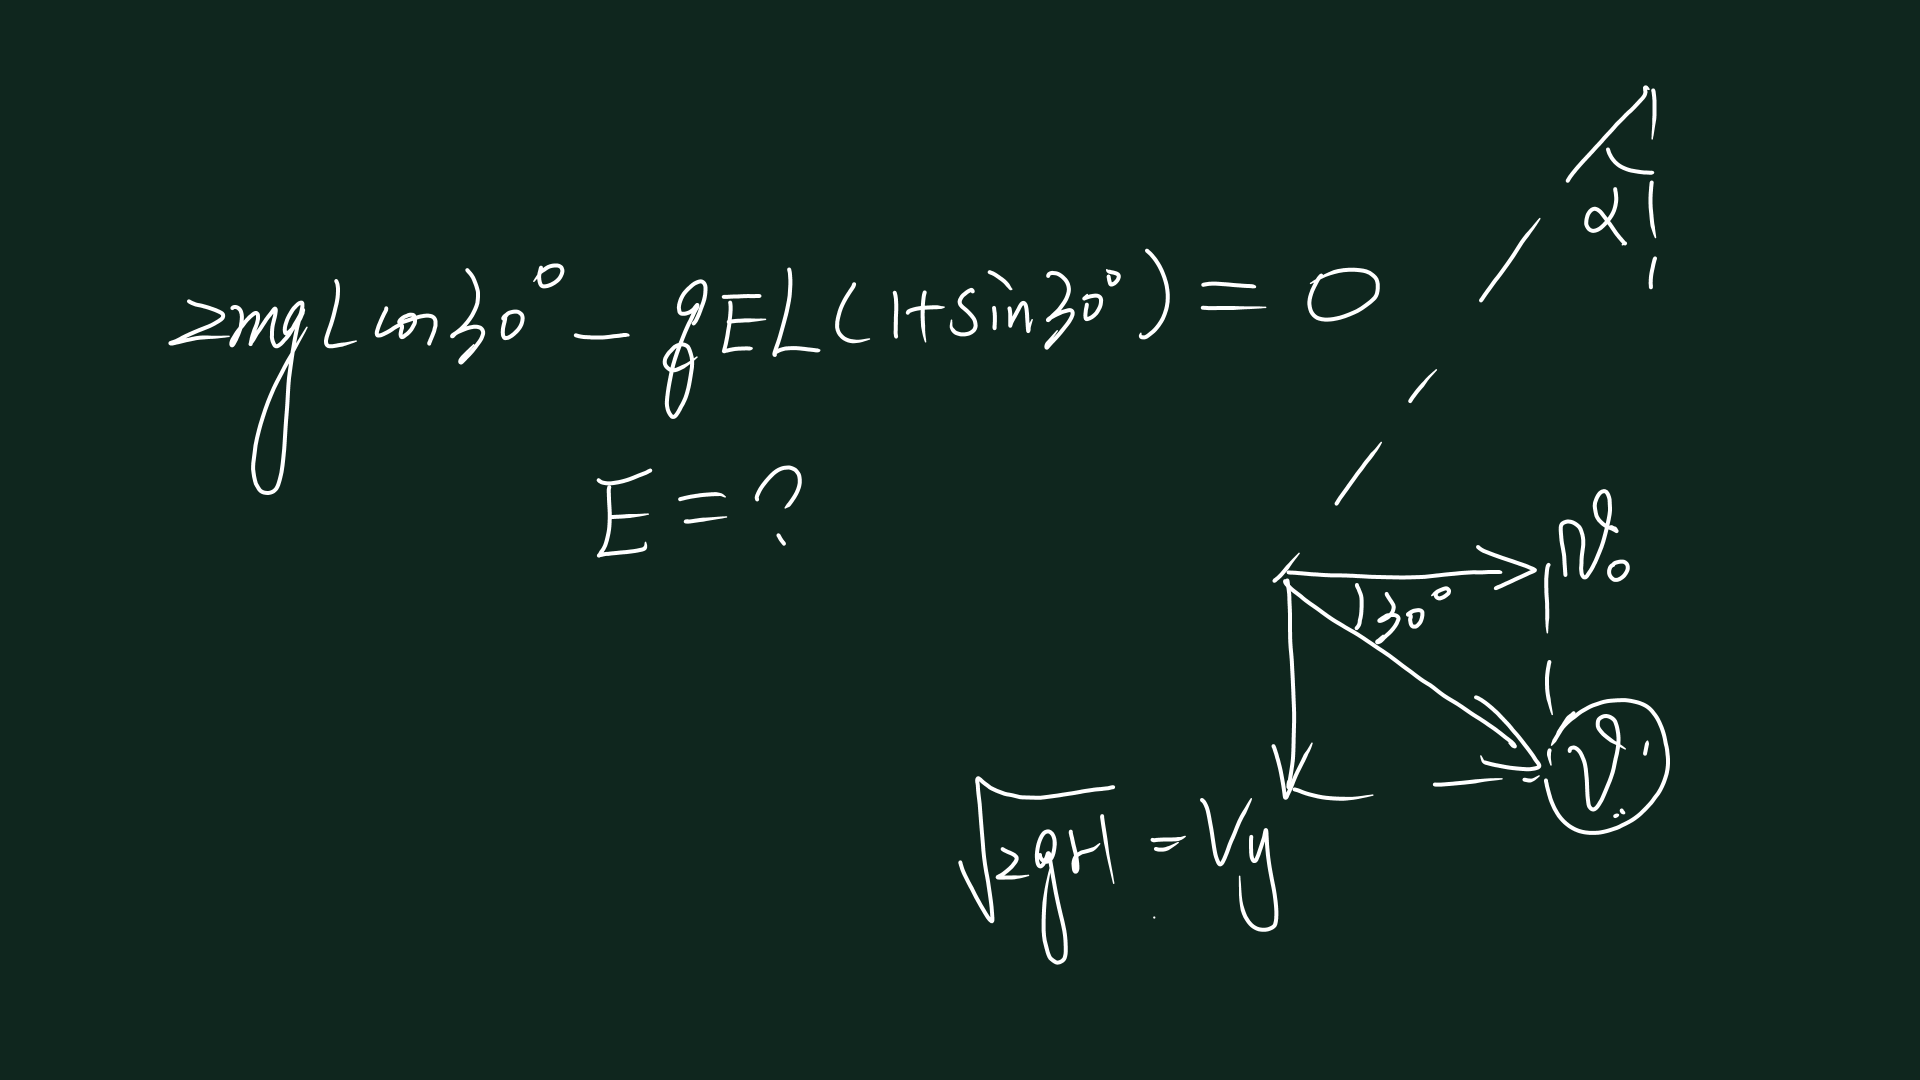 2mgLcos30° - qEL(1+sin30°) = 0
E = ?
α
v₀
30°
v
√2gH = Vy